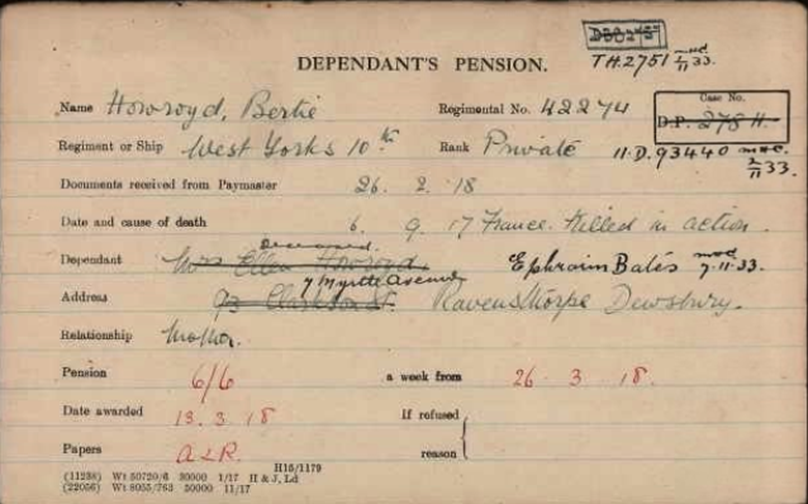 DEPENDANT'S PENSION.
TH.2751 2/11 33.
Name Howroyd, Bertie Regimental No. 42274 Case No.
D.P. 278 H.
Regiment or Ship West Yorks 10th Rank Private 11.D.93440
2/11 33.
Documents received from Paymaster 26. 2. 18
Date and cause of death 6. 9. 17 France. Killed in action.
Deceased.
Dependant Mrs Ellen Howroyd. Ephraim Bates 7.11.33.
7 Myrtle Avenue
Address 93 Clarkson St. Ravensthorpe Dewsbury.
Relationship Mother.
Pension 6/6 a week from 26. 3. 18.
Date awarded 13. 3. 18 If refused
Papers A2R. reason
H16/1179
(11238) Wt 50720/6 30000 1/17 H & J, Ld
(22056) Wt 8055/763 50000 11/17